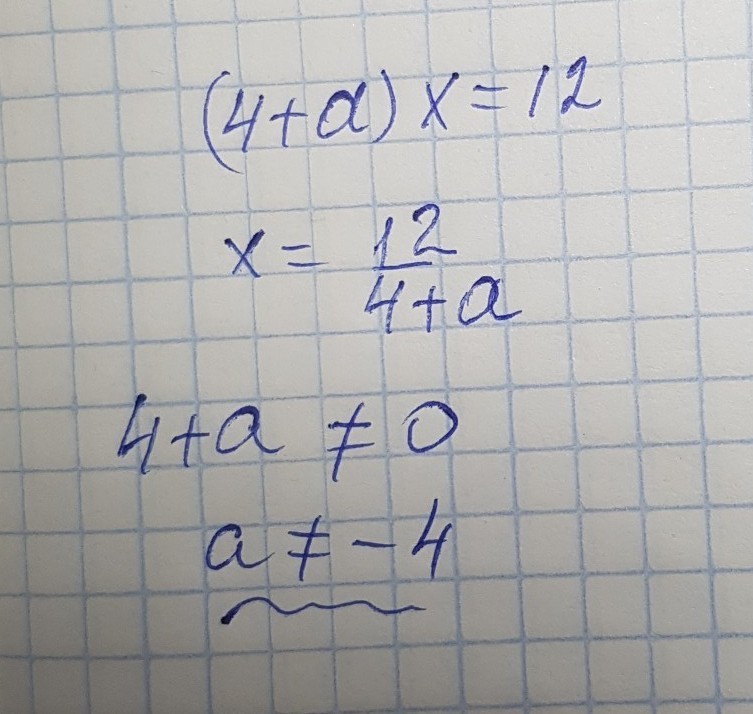 (4+a) x = 12
x = 12/4+a
4+a ≠ 0
a ≠ -4